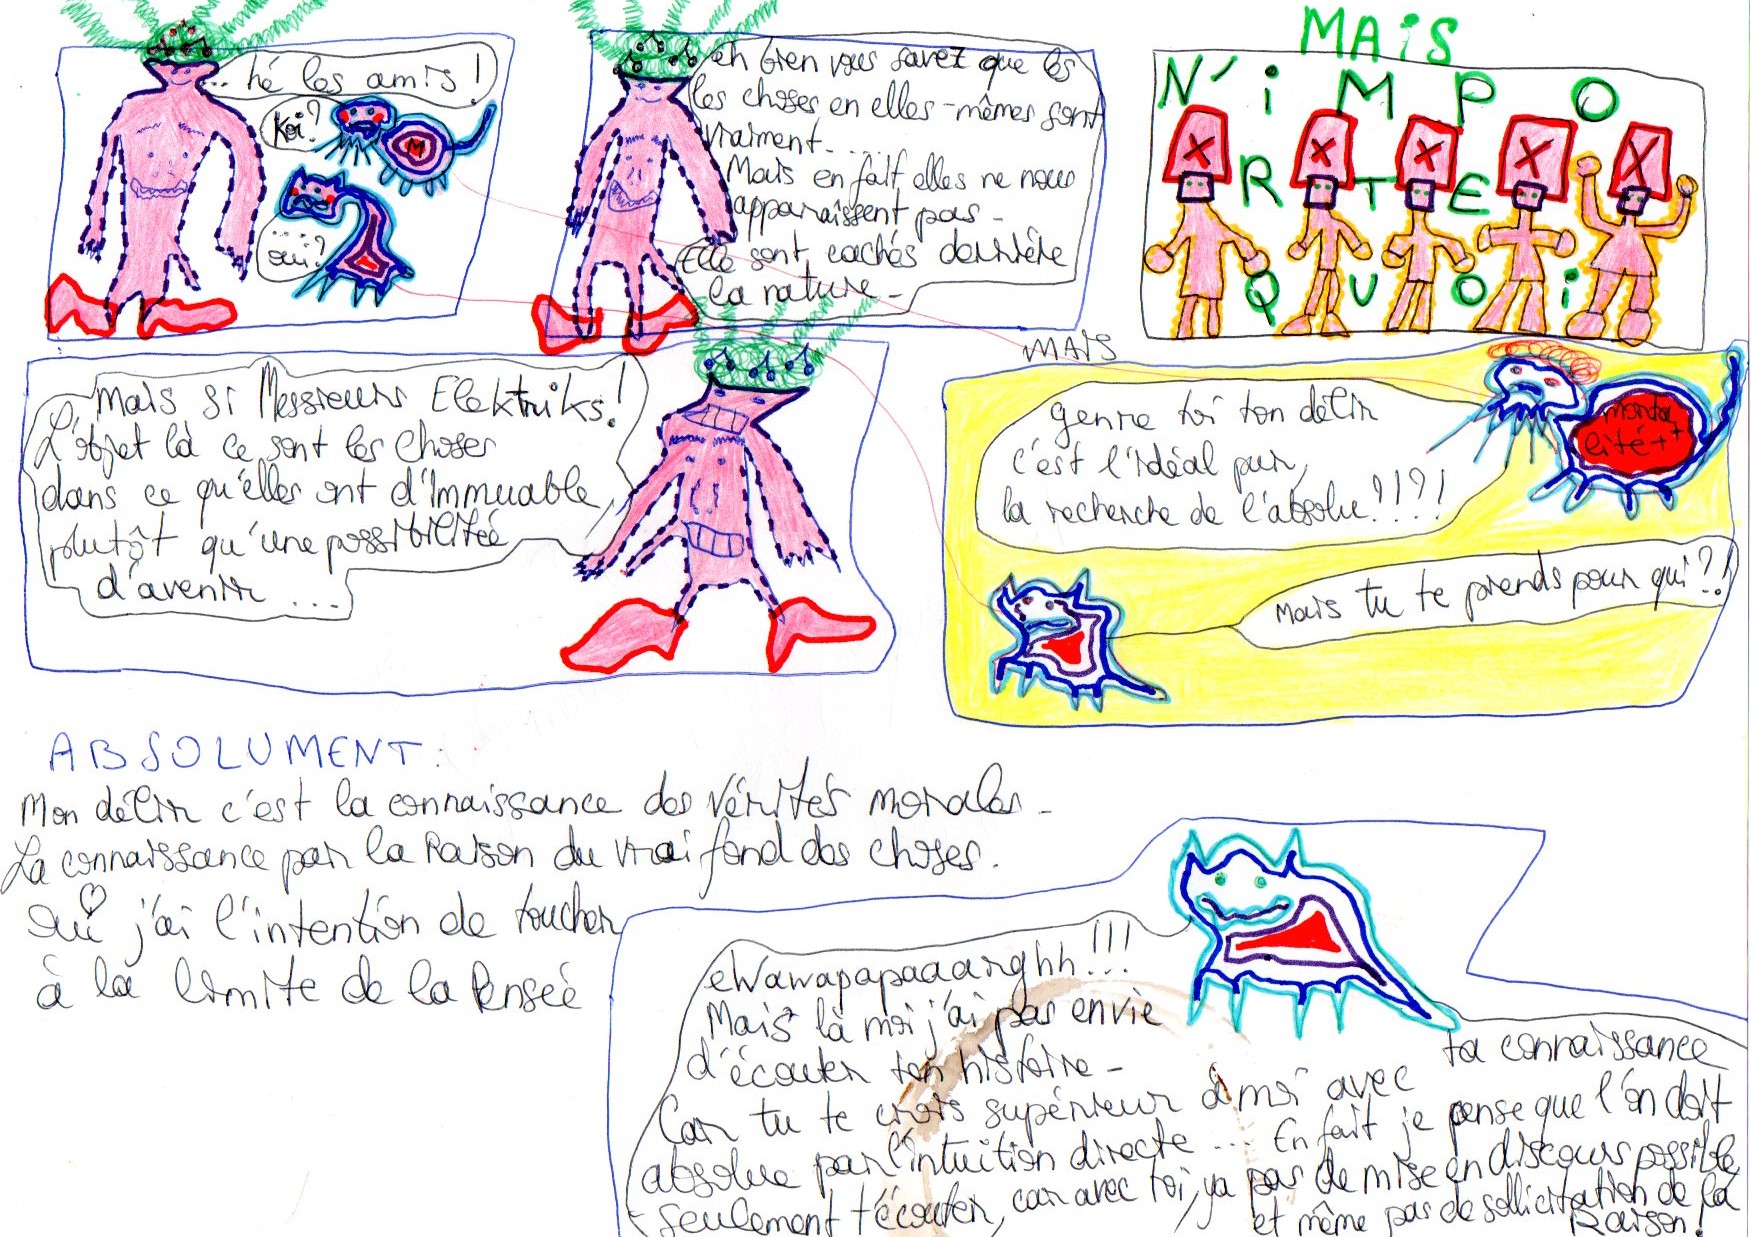 ... hé les amis !
Koi ?
M
..... oui ?
eh bien vous savez que les
les choses en elles-mêmes sont
vraiment.......
Mais en fait elles ne nous
apparaissent pas -
Elle sont cachés derrière
la nature -
MAiS
N'iMPO
RTE
QUOi
Mais si Messieurs Elektriks !
L'objet là ce sont les choses
dans ce qu'elles ont d'Immuable,
plutôt qu'une possibilitée
d'avenir ...
MAIS
genre toi ton délir
c'est l'idéal pur,
la recherche de l'absolu !?!?!
lité++
Mais tu te prends pour qui ?!
ABSOLUMENT :
Mon délir c'est la connaissance des Vérités morales -
La connaissance par la Raison du vrai fond des choses.
oui j'ai l'intention de toucher
à la limite de la Pensée
eWawapapaaaarghh !!!
Mais là moi j'ai pas envie
d'écouter ton histoire -
Car tu te crois supérieur à moi avec ta connaissance
absolue par l'intuition directe ... En fait je pense que l'on doit
seulement t'écouter, car avec toi, ya pas de mise en discours possible
et même pas de sollicitation de la
Raison !